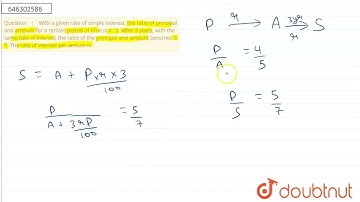 646302586
Question : With a given rate of simple interest, the ratio of principal
and amount for a certain period of time is 4 : 5. After 3 years, with the
same rate of interest, the ratio of the principal and amount becomes 5 :
7. The rate of interest per annum is
P r→ A 3yr→ r S
S = A + P×r×3/100
P/A = 4/5
P/(A + 3rP/100) = 5/7
P/S = 5/7
doubtnut